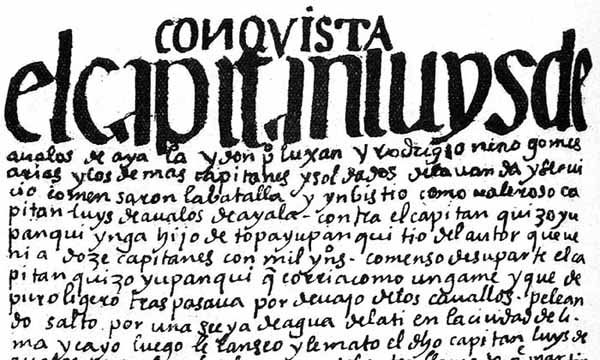 CONQVISTA
el capitan luys de
aualos de aya la y don p luxan y rrodrigo nino gomes
arias y los de mas capitanes y sol dados de la uan da y serui
cio comen saron la batalla y ynbistio como ualeroso ca
pitan luys de aualos de ayala contra el capitan quizo yu
panqui ynga hijo de topa yupan qui tio del autor que ve
ni a doze capitanes con mil yns comenso de su parte el ca
pitan quizo yupan qui q corria como un game y que de
puro ligero tras pasaua por deuajo de los cauallos pelean
do salto por una seya de agua de lati en la ciudad de li
ma y cayo luego le lanseo y le mato el dho capitan luys de